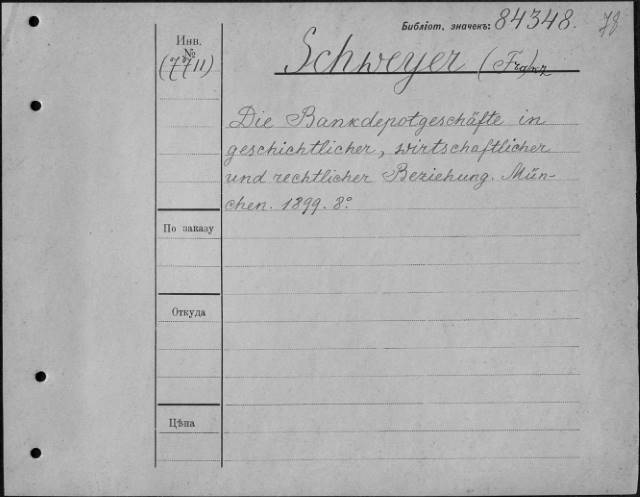 Библіот. значекъ: 84348.
Инв.
№
(7711)
Schweyer (Franz
Die Bankdepotgeschäfte in
geschichtlicher, wirtschaftlicher
und rechtlicher Beziehung. Mün-
chen. 1899. 8°
По заказу
Откуда
Цѣна